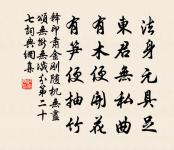 法身元具足
東君無私曲
有木便開花
有笋便抽竹
釋印肅金剛隨机無盡
頌無斷無滅分第二十
七詞典網集